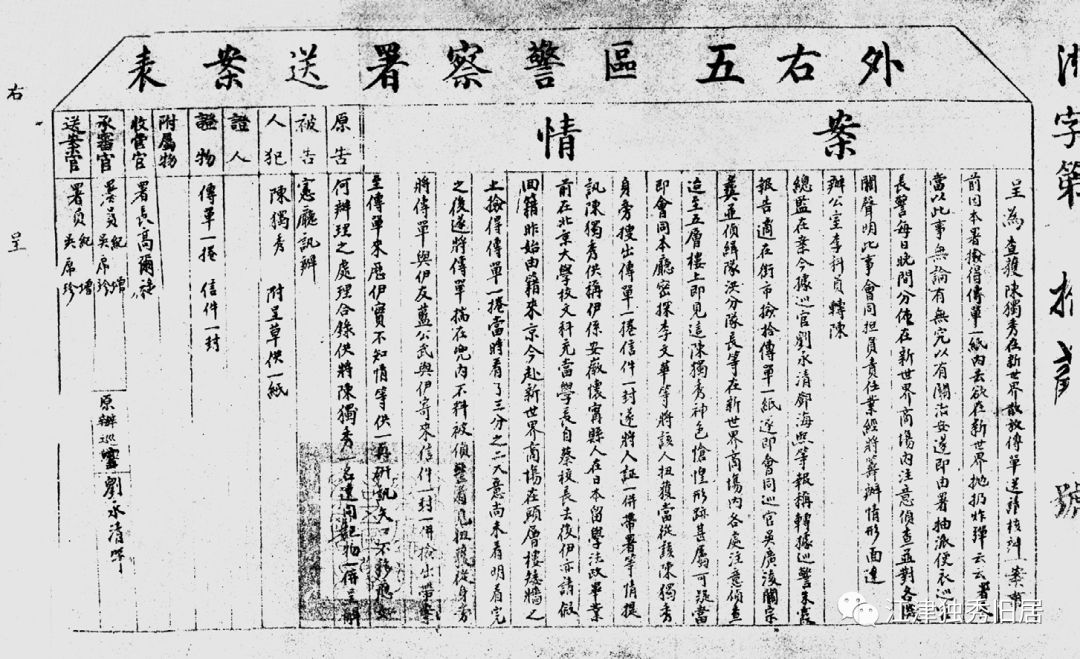 外右五區警察署送案表
案情
呈為查獲陳獨秀在新世界散放傳單送請核辦
前因本署撿得傳單一紙內云欲在新世界拋扔炸彈云云署
當以此事無論有無究以有關治安遂即由署抽派便衣巡
長警每日晚間分僅在新世界商場內注意偵查並對各
關聲明此事會同担負責任業經將籌辦情形面達
辦公室李科員轉陳
總監在案今據巡官劉永清鄧海熙等報稱轉據巡警
報告適在街市撿拾傳單一紙遂即會同巡官吳廣淩關宗
彝並偵緝隊洪分隊長等在新世界商場內各處注意偵查
迨至五層樓上即見這陳獨秀神色愴惶形跡甚屬可疑當
即會同本廳密探李文華等將該人扭獲當從該陳獨秀
身旁搜出傳單一捲信件一封遂將人証一併帶署等情提
訊陳獨秀供稱伊係安徽懷寧縣人在日本留學法政畢業
前在北京大學校文科充當學長自蔡校長去後伊亦請假
回籍昨始由籍來京今赴新世界商場在頂層樓矮牆之
上撿得傳單一捲當時看了三分之二大意尚未看明看完
之後遂將傳單揣在兜內不料被偵警看見扭獲從身旁
將傳單與伊友藍公武與伊寄來信件一封一併撿出帶署
至傳單來歷伊實不知情等供一再研訊矢口不移應如
何辦理之處理合錄供將陳獨秀一名連同犯物一併呈解
憲廳訊辦
原告
被告
人犯 陳獨秀 附呈草供一紙
證人
證物 傳單一捲 信件一封
附屬物
收管官 署長高爾祿
承審官 署員紀 吳席珍
送案官 署員紀 吳席珍
原辦巡官 劉永清
右 呈
字第 拾 號
江津独秀旧居